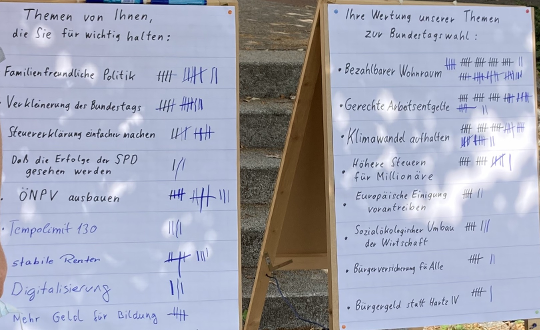 Themen von Ihnen,
die Sie für wichtig halten:
Familienfreundliche Politik
Verkleinerung des Bundestags
Steuererklärung einfacher machen
Daß die Erfolge der SPD
gesehen werden
ÖNPV ausbauen
Tempolimit 130
stabile Renten
Digitalisierung
Mehr Geld für Bildung
Ihre Wertung unserer Themen
zur Bundestagswahl:
• Bezahlbarer Wohnraum
• Gerechte Arbeitsentgelte
• Klimawandel aufhalten
• Höhere Steuern
für Millionäre
• Europäische Einigung
vorantreiben
• Sozialökologischer Umbau
der Wirtschaft
• Bürgerversicherung für Alle
• Bürgergeld statt Hartz IV